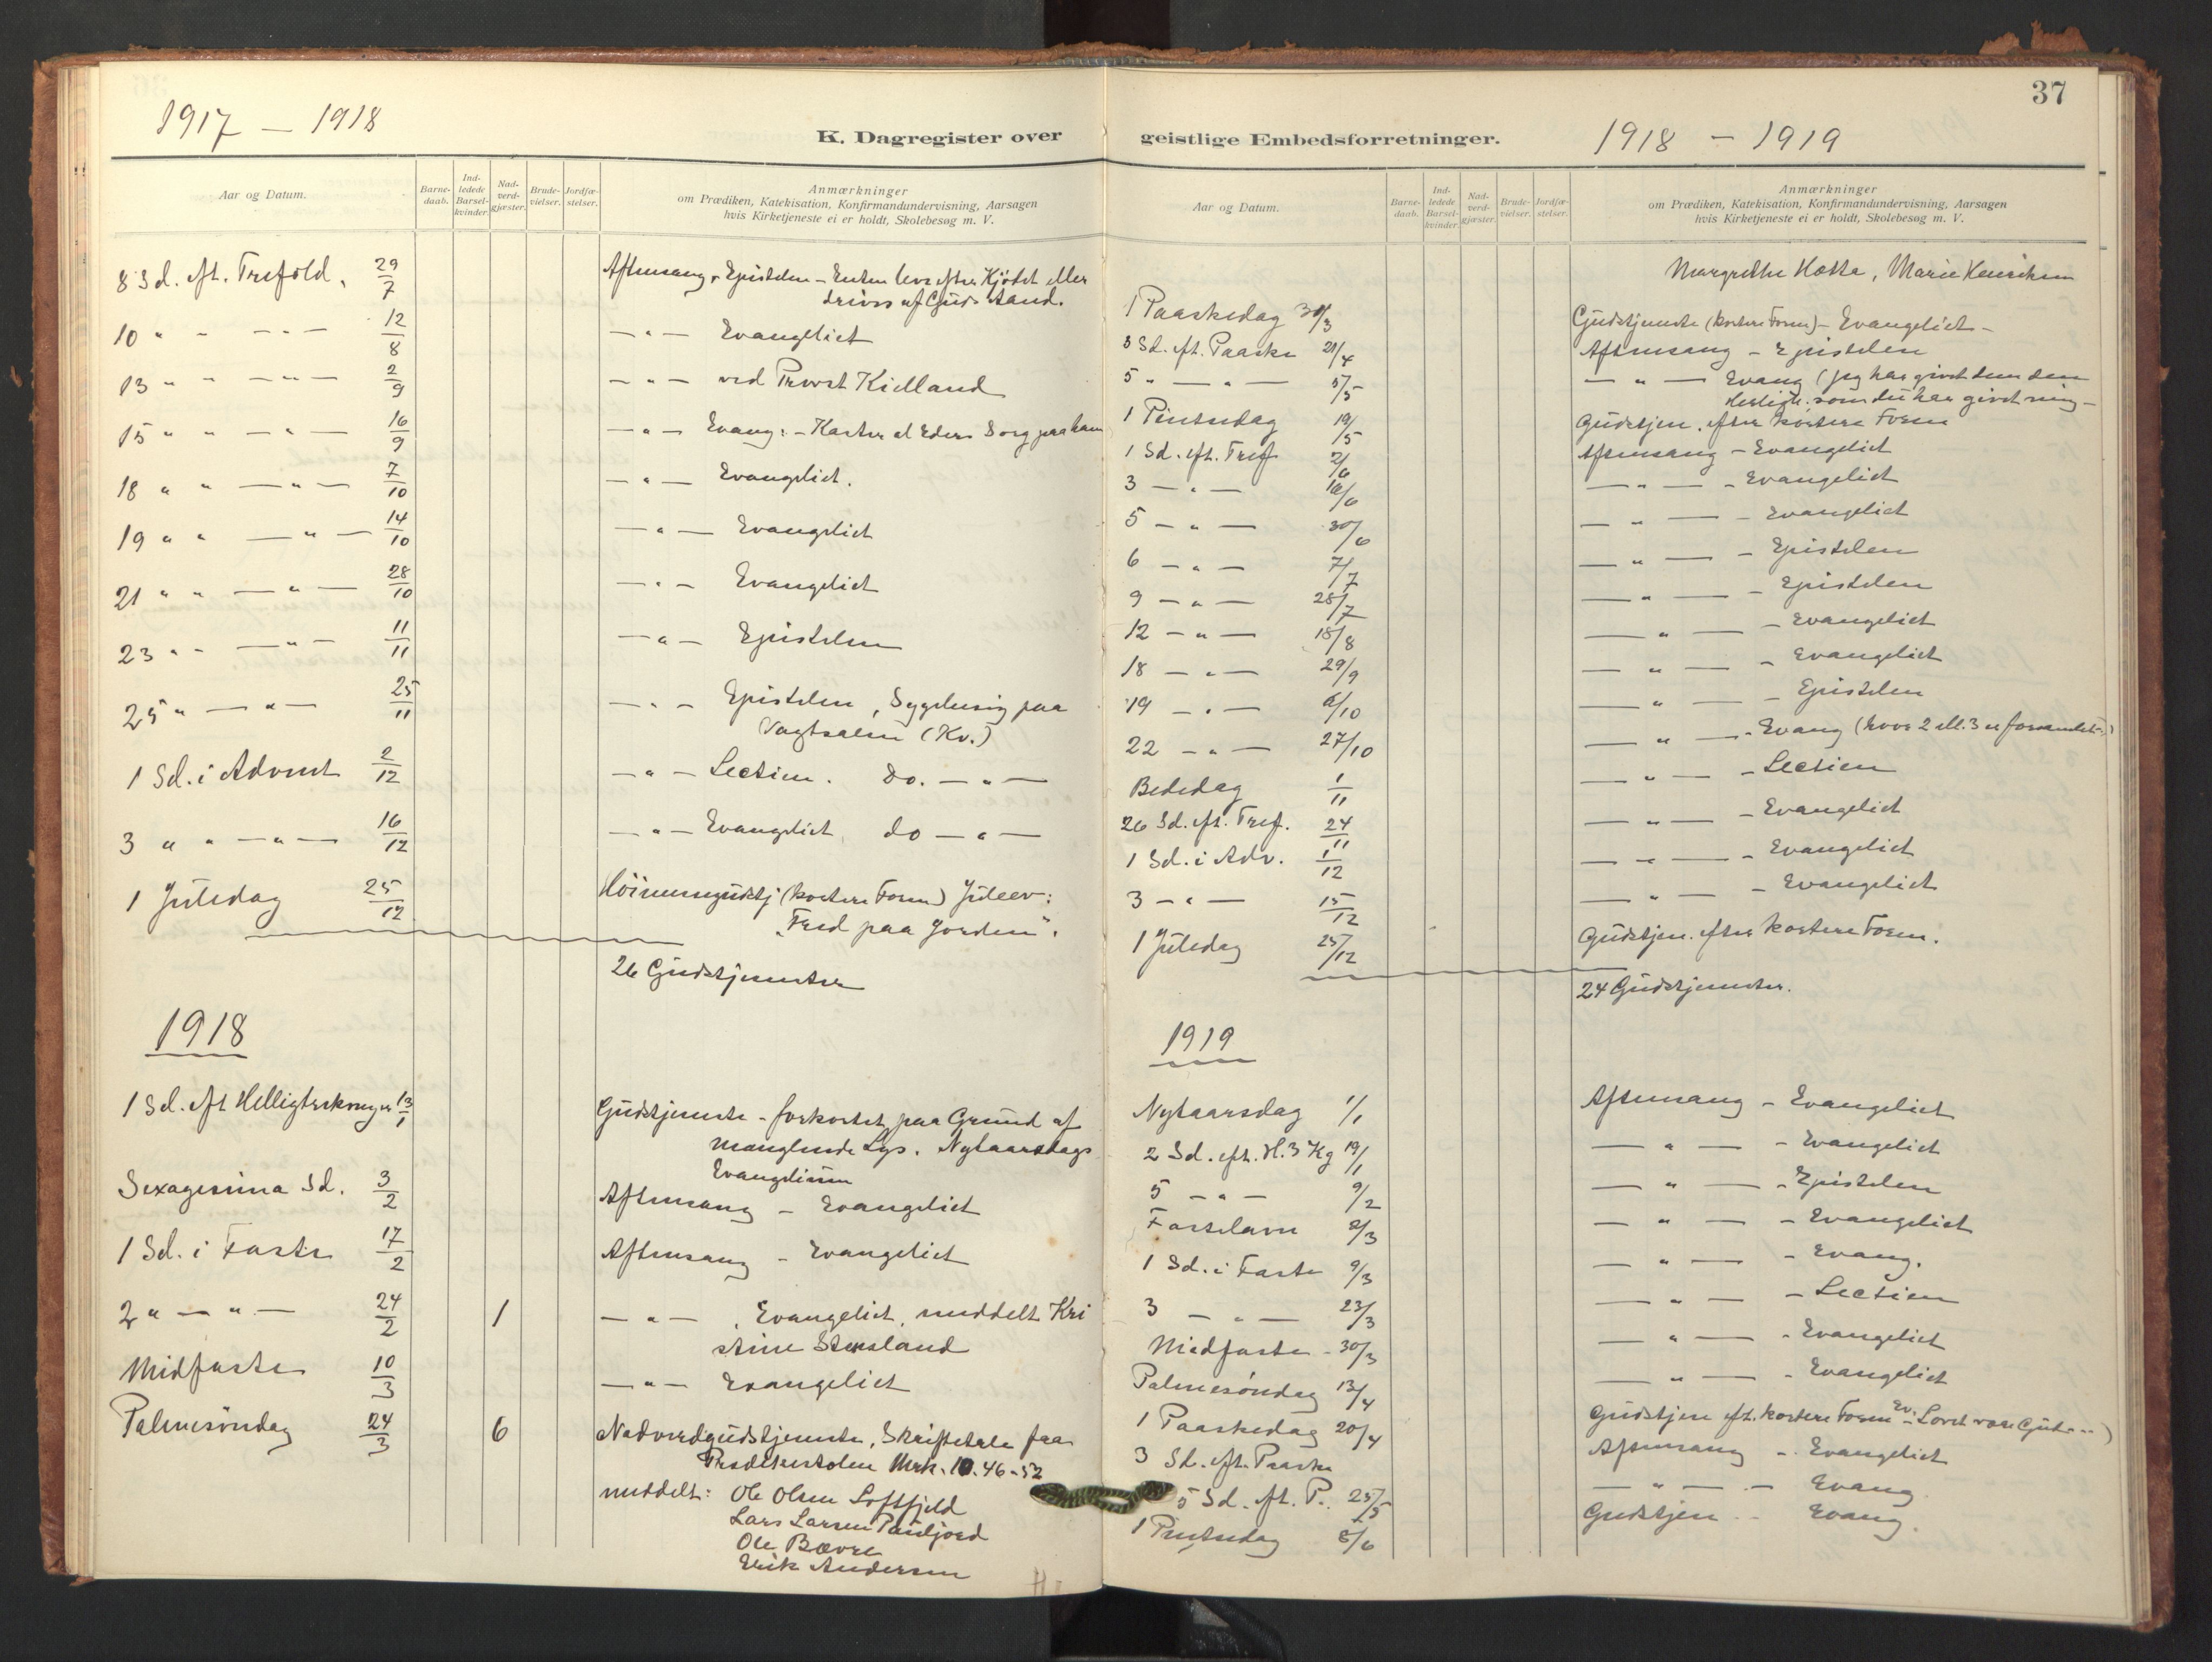 1917 — 1918
K. Dagregister over
Aar og Datum.
Barne-
daab.
Ind-
ledede
Barsel-
kvinder.
Nad-
verd-
gjæster.
Brude-
vielser.
Jordfæ-
stelser.
Anmærkninger
om Prædiken, Katekisation, Konfirmandundervisning, Aarsagen
hvis Kirketjeneste ei er holdt, Skolebesøg m. V.
8 Sd. eft. Trefold. 29/7 Aftensang. Epistelen - Enten leve efter Kjødet eller
drives af Guds Aand.
10 " - — " — 12/8 — " — Evangeliet
13 " - — " — 2/9 — " — ved Provst Kielland
15 " " — " — 16/9 — " — Evang: - Kaster al Eders Sorg paa ham
18 " " — " — 7/10 — " — Evangeliet.
19 " " — " — 14/10 — " — Evangeliet
21 " " — " — 28/10 — " — Evangeliet
23 " " — " — 11/11 — " — Epistelen
25 " — " — 25/11 — " — Epistelen, Sygebesøg paa
Vagtsalen (Kv.)
1 Sd. i Advent 2/12 — " — Lectien. Do. — " —
3 " " — " — 16/12 — " — Evangeliet, do — " —
1 Juledag 25/12 Höimessegudstj (kortere Form) Juleev:
"Fred paa Jorden".
26 Gudstjenester
1918
1 Sd. eft Helligtrekonger 13/1 Gudstjeneste - forkortet paa Grund af
manglende Lys. Nytaarsdags
Evangelium
Sexagesima Sd. 3/2 Aftensang - Evangeliet
1 Sd. i Faste 17/2 Aftensang - Evangeliet
2 " — " — 24/2 1 — " — , Evangeliet, meddelt Kri
stine Stensland
Midfaste 10/3 — " — Evangeliet
Palmesöndag 24/3 6 Nadverdgudstjeneste, Skriftetale fra
Prædikestolen Mrk. 10.46-52
meddelt: Ole Olsen Loftfjeld
Lars Larsen Pauljord
Ole Bævre
Erik Andersen
37
geistlige Embedsforretninger.
1918 — 1919
Aar og Datum.
Barne-
daab.
Ind-
ledede
Barsel-
kvinder.
Nad-
verd-
gjæster.
Brude-
vielser.
Jordfæ-
stelser.
Anmærkninger
om Prædiken, Katekisation, Konfirmandundervisning, Aarsagen
hvis Kirketjeneste ei er holdt, Skolebesøg m. V.
Margrethe Hætta, Marie Henriksen
1 Paaskedag 31/3 Gudstjeneste (kortere Form) - Evangeliet -
3 Sd. eft. Paaske 21/4 Aftensang - Epistelen
5 " — " — 5/5 — " — Evang (jeg har givet dem den
Herligh. som du har givet mig -
1 Pintsedag 19/5 Gudstjen. efter kortere Form
1 Sd. eft. Tref 2/6 Aftensang - Evangeliet
3 — " — 16/6 — " — - Evangeliet
5 — " — 30/6 — " — - Evangeliet
6 — " — 7/7 — " — - Epistelen
9 — " — 28/7 — " — - Epistelen
12 — " — 18/8 — " — - Evangeliet
18 — " — 29/9 — " — - Evangeliet
19 — " — 6/10 — " — - Epistelen
22 — " — 27/10 — " — - Evang (hvor 2 ell. 3 er forsamlet -)
Bededag 1/11 — " — - Lectien
26 Sd. eft. Tref. 24/11 — " — - Evangeliet
1 Sd. i Adv. 1/12 — " — - Evangeliet
3 — " — 15/12 — " — - Evangeliet
1 Juledag 25/12 Gudstjen. efter kortere Form.
24 Gudstjenester.
1919
Nytaarsdag 1/1 Aftensang - Evangeliet
2 Sd. eft. H. 3 Kg 19/1 — " — - Evangeliet
5 — " — 9/2 — " — - Epistelen
Fastelavn 2/3 — " — - Evangeliet
1 Sd. i Faste 9/3 — " — - Evang.
3 — " — 23/3 — " — - Lectien
Midfaste - 30/3 — " — - Evangeliet
Palmesöndag 13/4 — " — - Evangeliet
1 Paaskedag 20/4 Gudstjen eft. kortere Form Ev. - Lovet være Gud - -)
3 Sd. eft. Paaske Aftensang - Evangeliet
5 Sd. eft. P. 25/5 — " — - Evang
1 Pintsedag 8/6 Gudstjen - Evang.